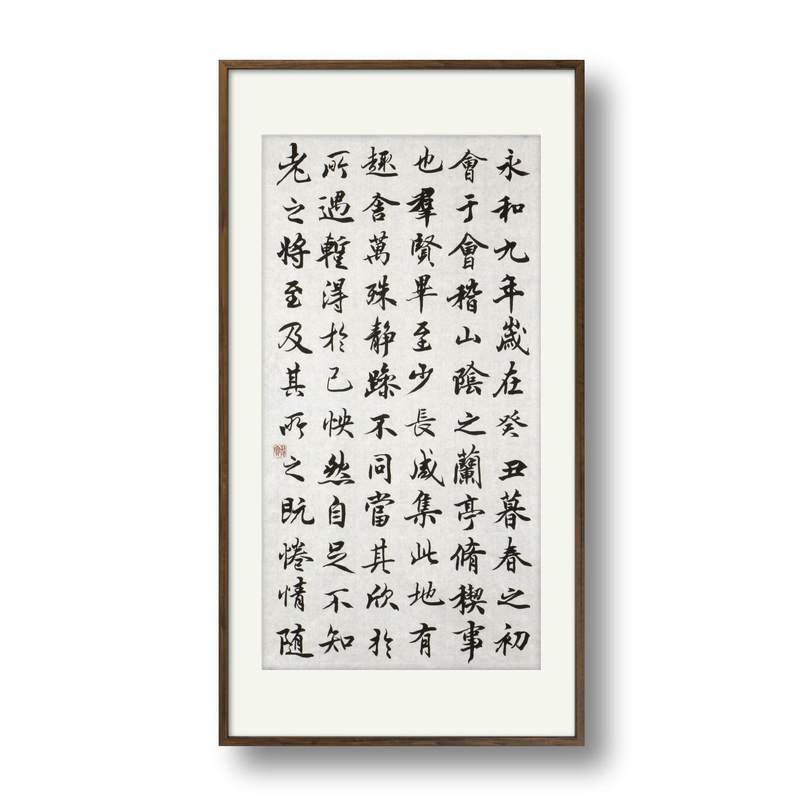 永和九年歲在癸丑暮春之初
會于會稽山陰之蘭亭脩稧事
也羣賢畢至少長咸集此地有
趣舍萬殊静躁不同當其欣於
所遇暫得於己怏然自足不知
老之將至及其所之既惓情随